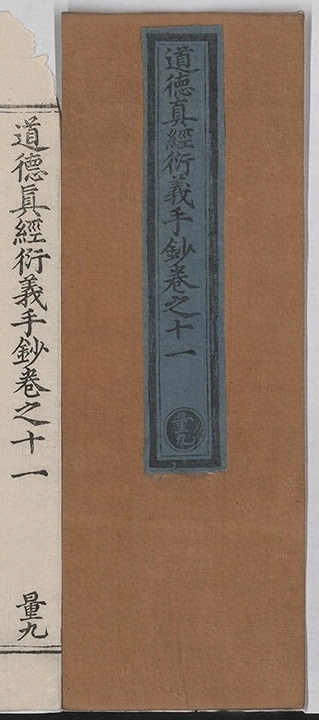 道德真經衍義手鈔卷之十一
量九
道德眞經衍義手鈔卷之十一
量九